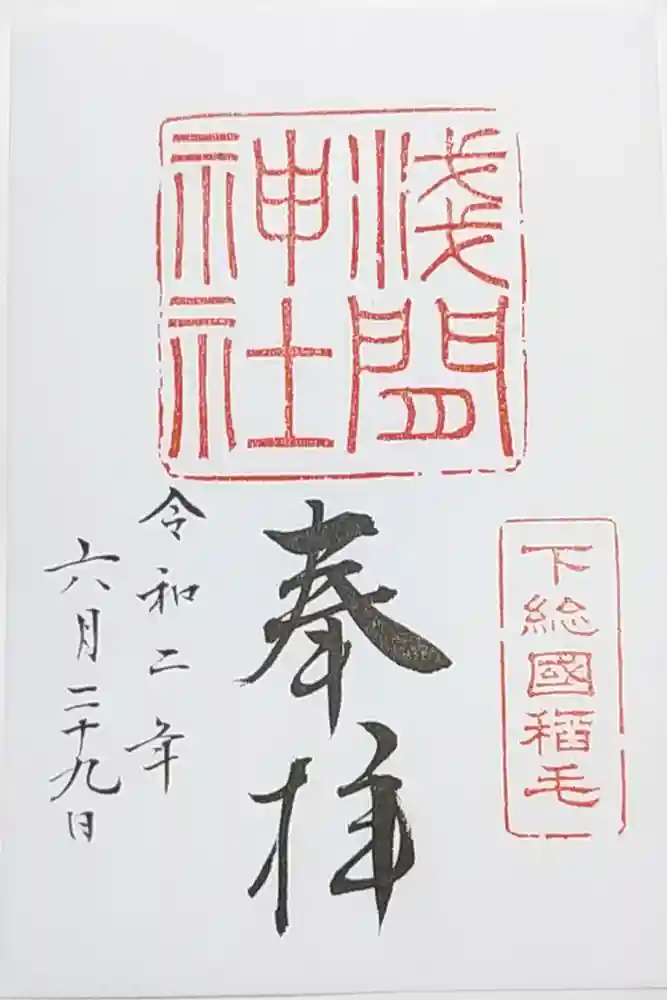 下総國稲毛
浅間
神社
奉拝
令和二年
六月二十九日